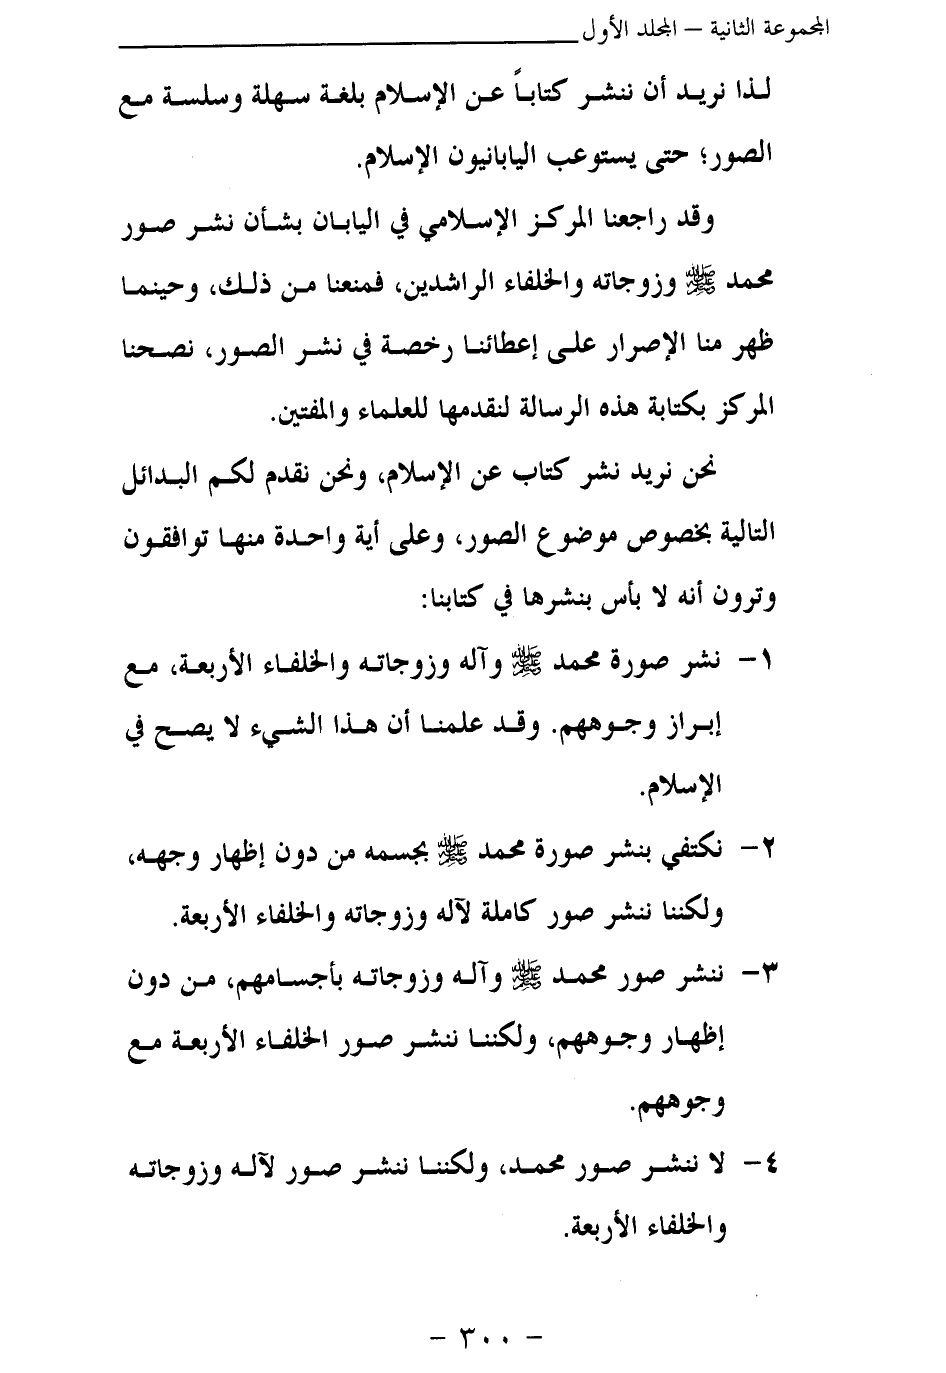 المجموعة الثانية – المجلد الأول
لذا نريد أن ننشر كتاباً عن الإسلام بلغة سهلة وسلسة مع
الصور؛ حتى يستوعب اليابانيون الإسلام.
وقد راجعنا المركز الإسلامي في اليابان بشأن نشر صور
محمد ﷺ وزوجاته والخلفاء الراشدين، فمنعنا من ذلك، وحينما
ظهر منا الإصرار على إعطائنا رخصة في نشر الصور، نصحنا
المركز بكتابة هذه الرسالة لنقدمها للعلماء والمفتين.
نحن نريد نشر كتاب عن الإسلام، ونحن نقدم لكم البدائل
التالية بخصوص موضوع الصور، وعلى أية واحدة منها توافقون
وترون أنه لا بأس بنشرها في كتابنا:
١- نشر صورة محمد ﷺ وآله وزوجاته والخلفاء الأربعة، مع
إبراز وجوههم. وقد علمنا أن هذا الشيء لا يصح في
الإسلام.
٢- نكتفي بنشر صورة محمد ﷺ بجسمه من دون إظهار وجهه،
ولكننا ننشر صور كاملة لآله وزوجاته والخلفاء الأربعة.
٣- ننشر صور محمد ﷺ وآله وزوجاته بأجسامهم، من دون
إظهار وجوههم، ولكننا ننشر صور الخلفاء الأربعة مع
وجوههم.
٤- لا ننشر صور محمد، ولكننا ننشر صور لآله وزوجاته
والخلفاء الأربعة.
- ٣٠٠ -